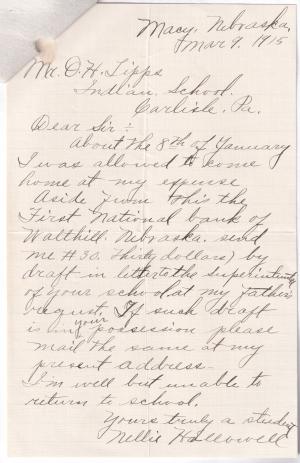 Macy, Nebraska,
Mar 9, 1915
Mr. O. H. Lipps
Indian School.
Carlisle. Pa.
Dear Sir:-
About the 8th of January
I was allowed to come
home at my expense
Aside from this the
First National bank of
Walthill. Nebraska. send
me $30. Thirty dollars) by
draft in letter to the superintendent
of your school. at my father's
request. If such draft
is in your possession please
mail the same at my
present address.
I'm well but unable to
return to school.
Yours truly a student
Nellie Hallowell